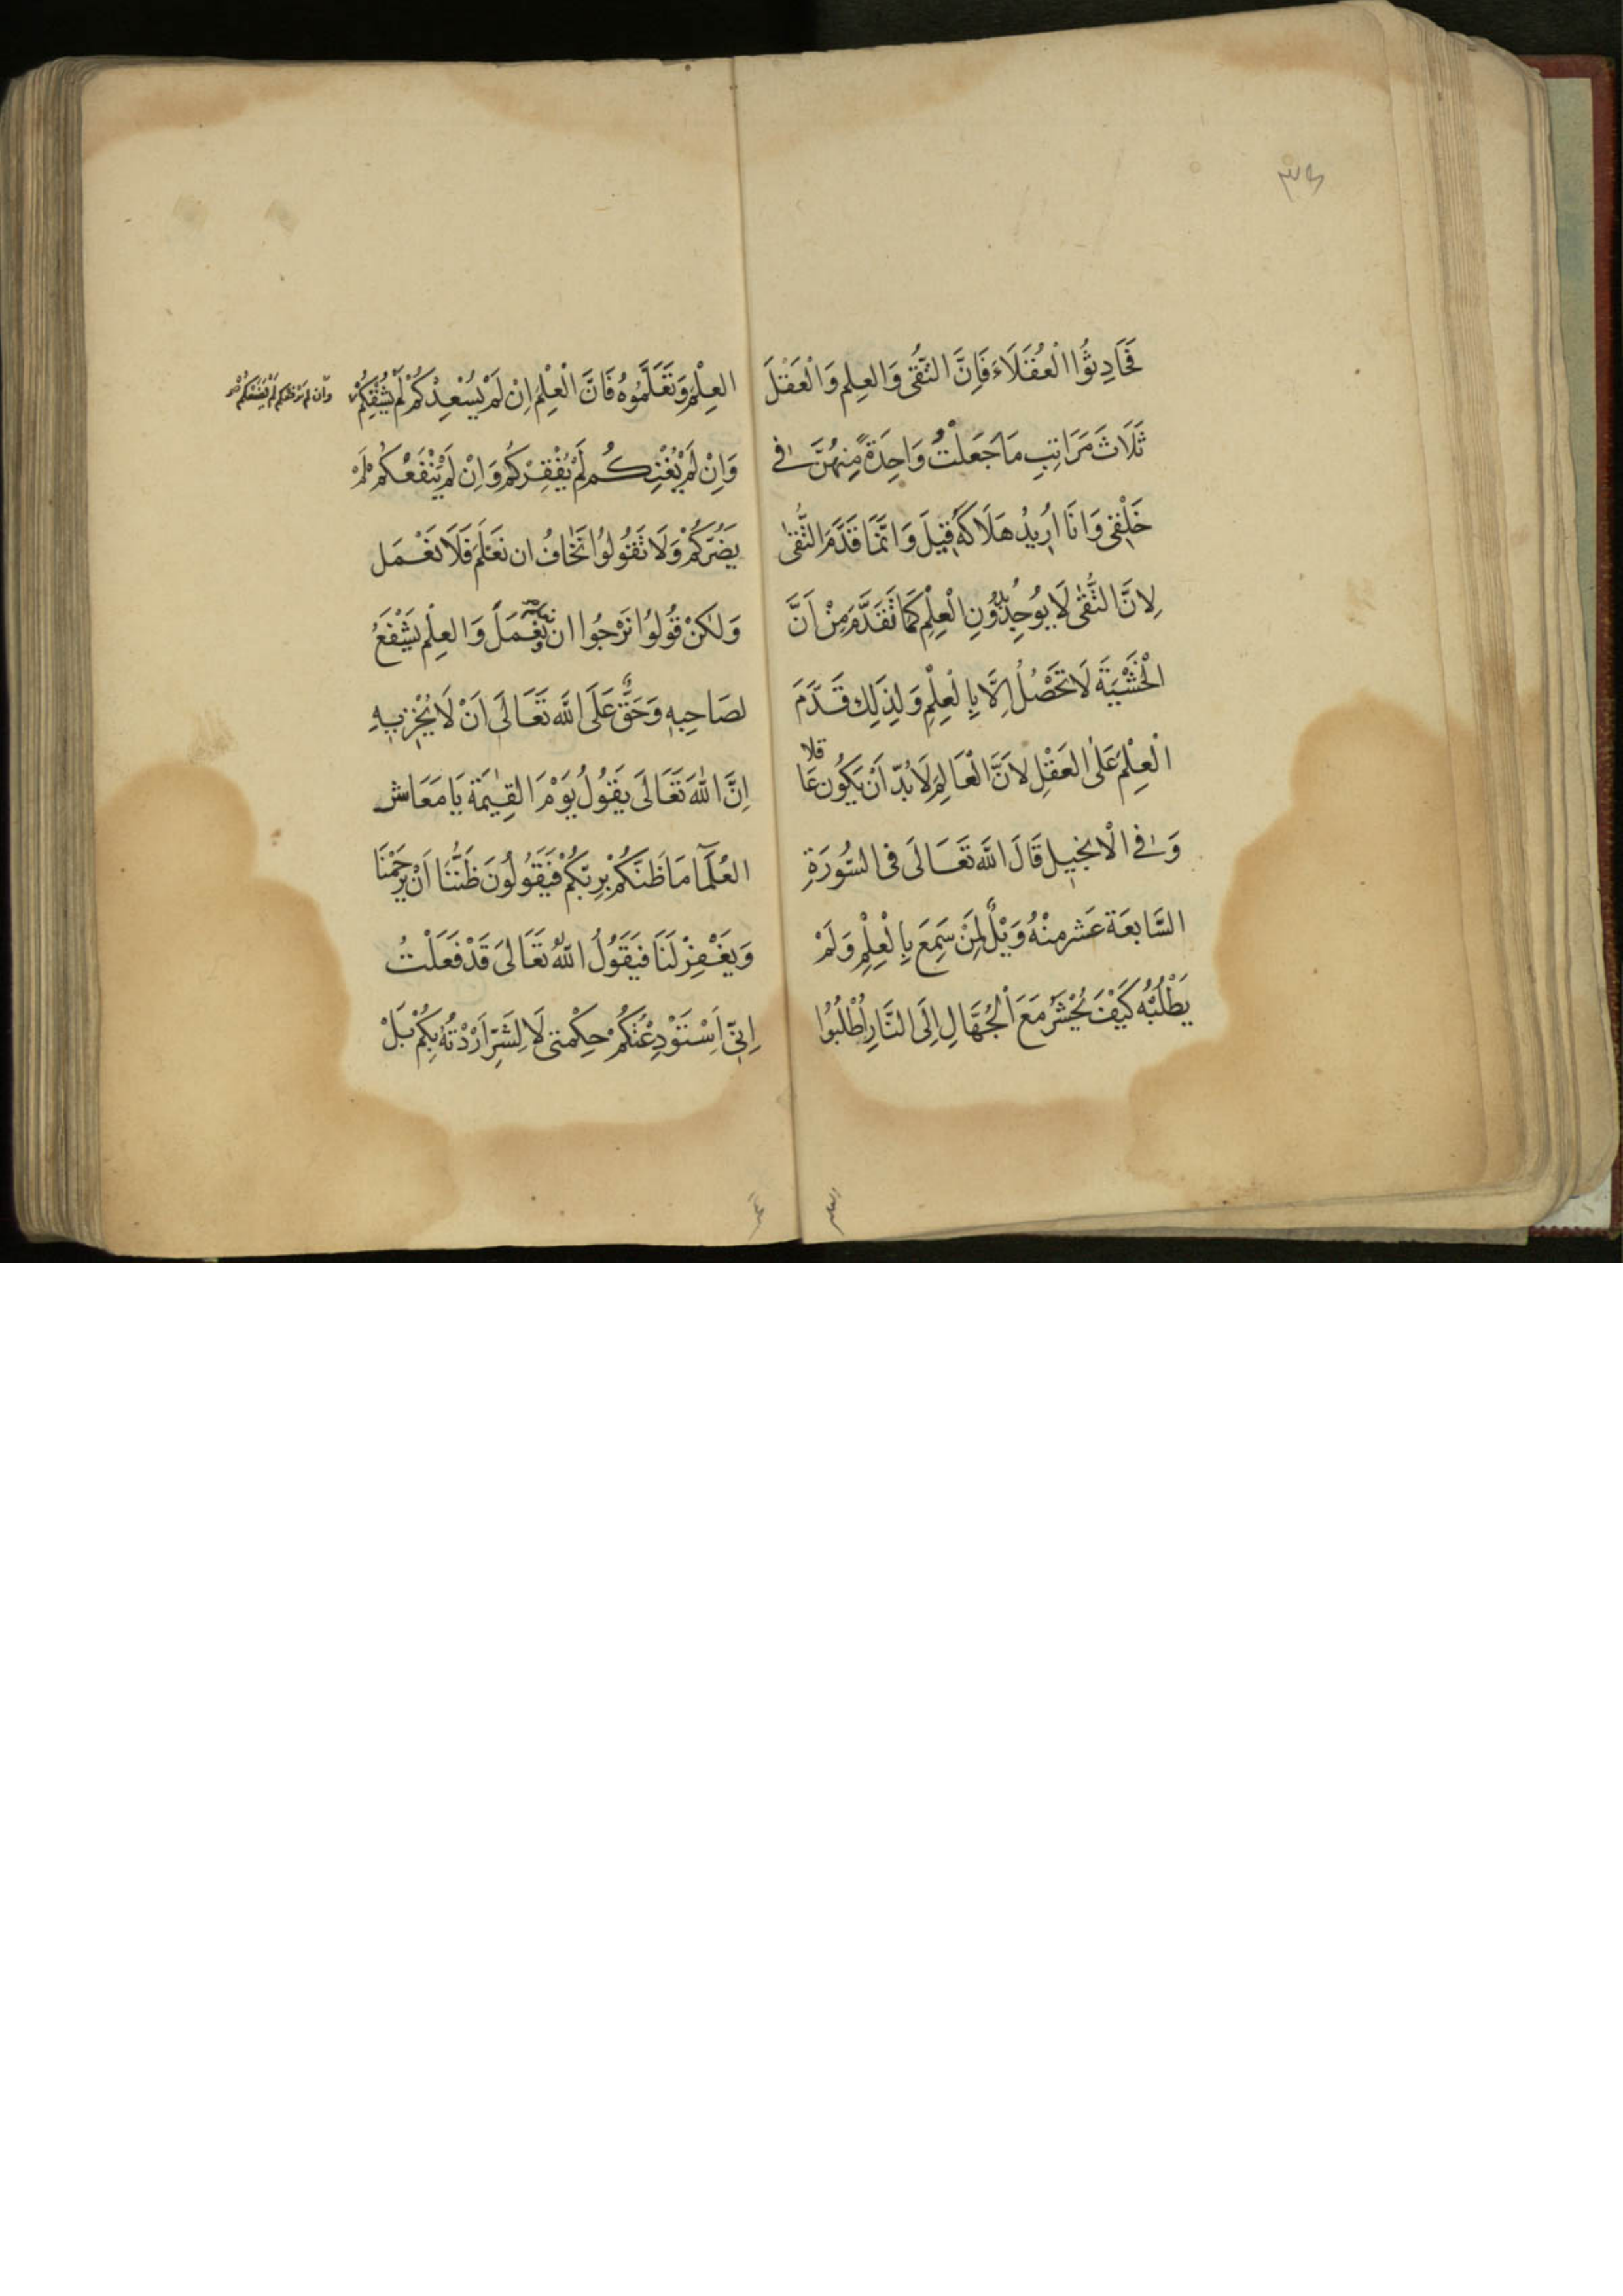 ٣٤
فَحَادِثُوا الْعُقَلَاءَ فَاِنَّ التُّقٰى وَالعِلمِ وَالْعَقْلَ
ثَلَاثَ مَرَاتِبِ مَا جَعَلْتُ وَاحِدَةً مِنهُنَّ فى
خَلْقِى وَانَا اُرِيدُ هَلَاكَهُ قِيلَ وَاِنَّمَا قَدَّمَ التُّقٰى
لِانَّ التُّقٰى لَا يُوجَدُ بِدُونِ الْعِلْمِ كَمَا تَقَدَّمَ مِنْ اَنَّ
الْخَشْيَةَ لَا تَحْصُلُ اِلَّا بِالْعِلْمِ وَلِذَلِكَ قَدَّمَ
الْعِلْمَ عَلَى العَقْلِ لِاَنَّ الْعَالِمَ لَا بُدَّ اَنْ يَكُونَ عَاقلا
وَفى الْاِنجِيلِ قَالَ اللَّه تَعَالَى فى السُّورَةِ
السَّابعَة عَشر مِنْهُ وَيْلٌ لِمَنْ سَمِعَ بِالْعِلْمِ وَلَمْ
يَطْلُبْهُ كَيْفَ يُحْشَرُ مَعَ الْجُهَّالِ اِلَى النَّارِ اُطْلُبُوا
العلم
العِلْمَ وَتَعَلَّمُوهُ فَانَّ الْعِلْمَ اِنْ لَمْ يُسْعِدْكُمْ لَمْ يُشْقِكُمْ
وان لم يرفعكم لم يضعكم
وَاِنْ لَمْ يُغْنِكُم لَمْ يُفْقِرْكُم وَاِنْ لَمْ يَنْفَعْكُمْ لَمْ
يَضُرَّكُمْ وَلَا تَقُولُوا نَخَافُ ان نَعْلَمَ فَلَا نَعْمَل
وَلٰكِنْ قُولُوا نَرْجُوا ان نَعْمَلَ وَالعِلْم يَشْفَعُ
لصَاحِبِهِ وَحَقٌّ عَلَى اللَّه تَعَالَى اَنْ لَا يُخْزِيَهِ
اِنَّ اللهَ تَعَالَى يَقُولُ يَوْمَ القِيٰمَة يَا مَعَاشر
العُلَمَآ مَا ظَنُّكُمْ بِرِبِّكُمْ فَيَقُولُونَ ظَنُّنَا اَنْ يَرْحَمْنَا
وَيَغْفِرْ لَنَا فَيَقُولُ اللهُ تَعَالىَ قَدْ فَعَلْتُ
اِنِّى اَسْتَوْدِعْتُكُمْ حِكْمتى لَا لِشَرٍّ اَرَدْتُهُ بِكُمْ بَلْ